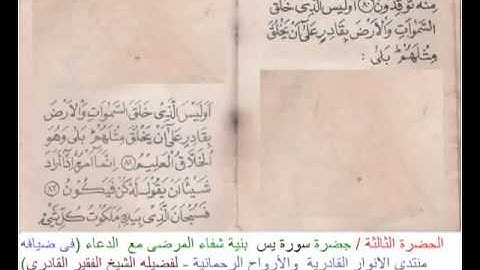 مِنْهُ تُوقِدُونَ ﴿٨٠﴾ اَوَلَيْسَ الَّذِي خَلَقَ
السَّمٰوَاتِ وَالْاَرْضَ بِقَادِرٍ عَلٰى اَنْ يَخْلُقَ
مِثْلَهُمْ بَلٰى :
اَوَلَيْسَ الَّذِي خَلَقَ السَّمٰوَاتِ وَالْاَرْضَ
بِقَادِرٍ عَلٰى اَنْ يَخْلُقَ مِثْلَهُمْ بَلٰى وَهُوَ
الْخَلَّاقُ الْعَلِيمُ ﴿٨١﴾ اِنَّمَا اَمْرُهُ اِذَا اَرَادَ
شَيْئًا اَنْ يَقُولَ لَهُ كُنْ فَيَكُونُ ﴿٨٢﴾
فَسُبْحَانَ الَّذِي بِيَدِهِ مَلَكُوتُ كُلِّ شَيْءٍ
الحضرة الثالثة / جضرة سورة يس بنية شفاء المرضى مع الدعاء (فى ضيافه
منتدى الانوار القادرية والأرواح الرحمانية - لفضيله الشيخ الفقير القادري)